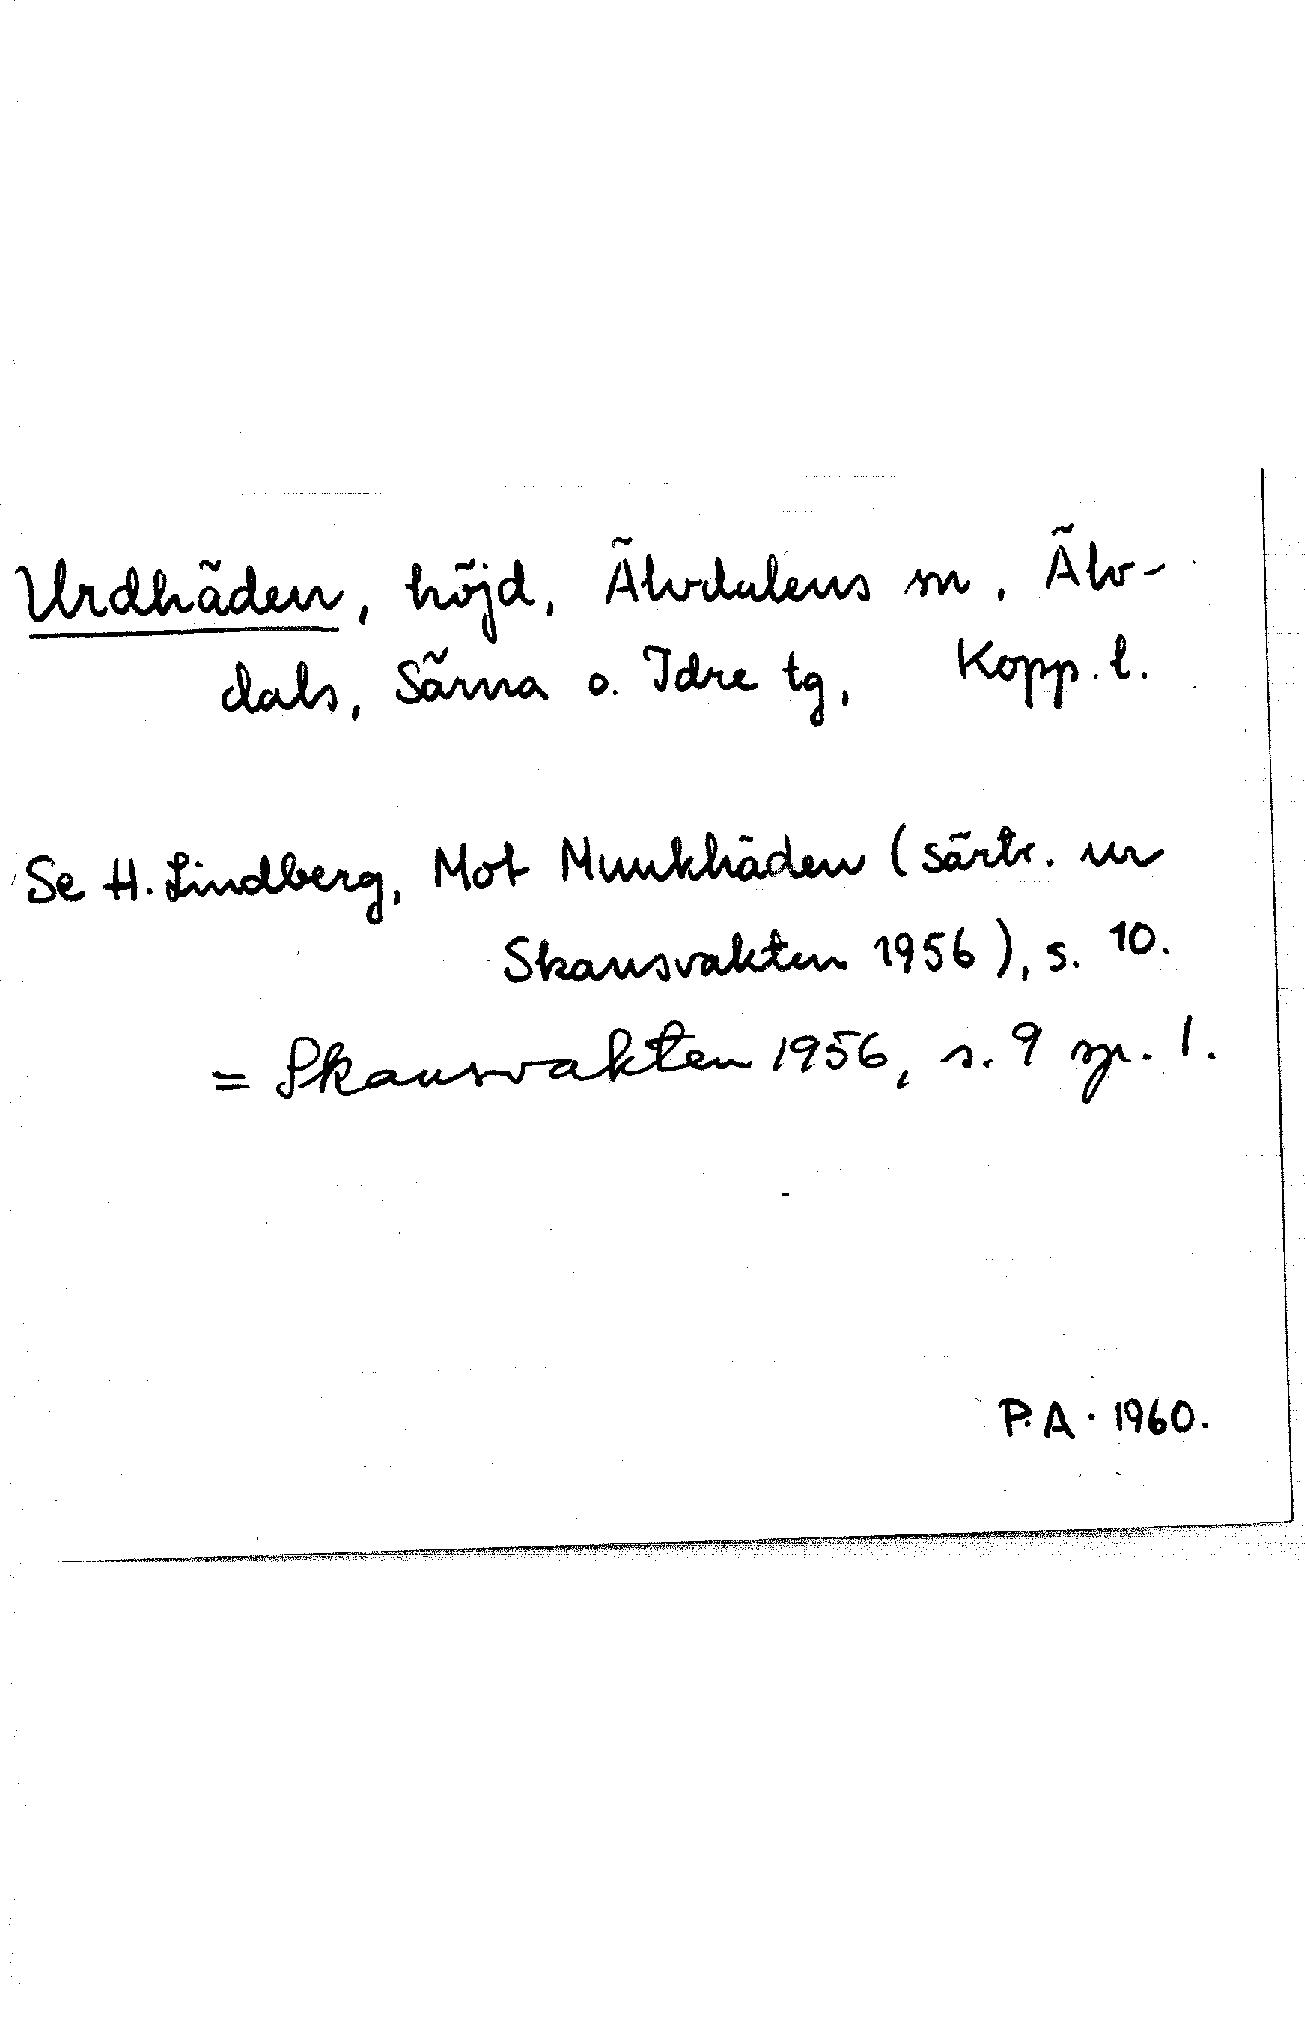 Urdhäden, höjd, Älvdalens sn, Älv-
dals, Särna o. Idre tg, Kopp. l.
Se H. Lindberg, Mot Munkhäden (särtr. ur
Skansvakten 1956), s. 10.
= Skansvakten 1956, s. 9 sp. 1.
P. A. 1960.